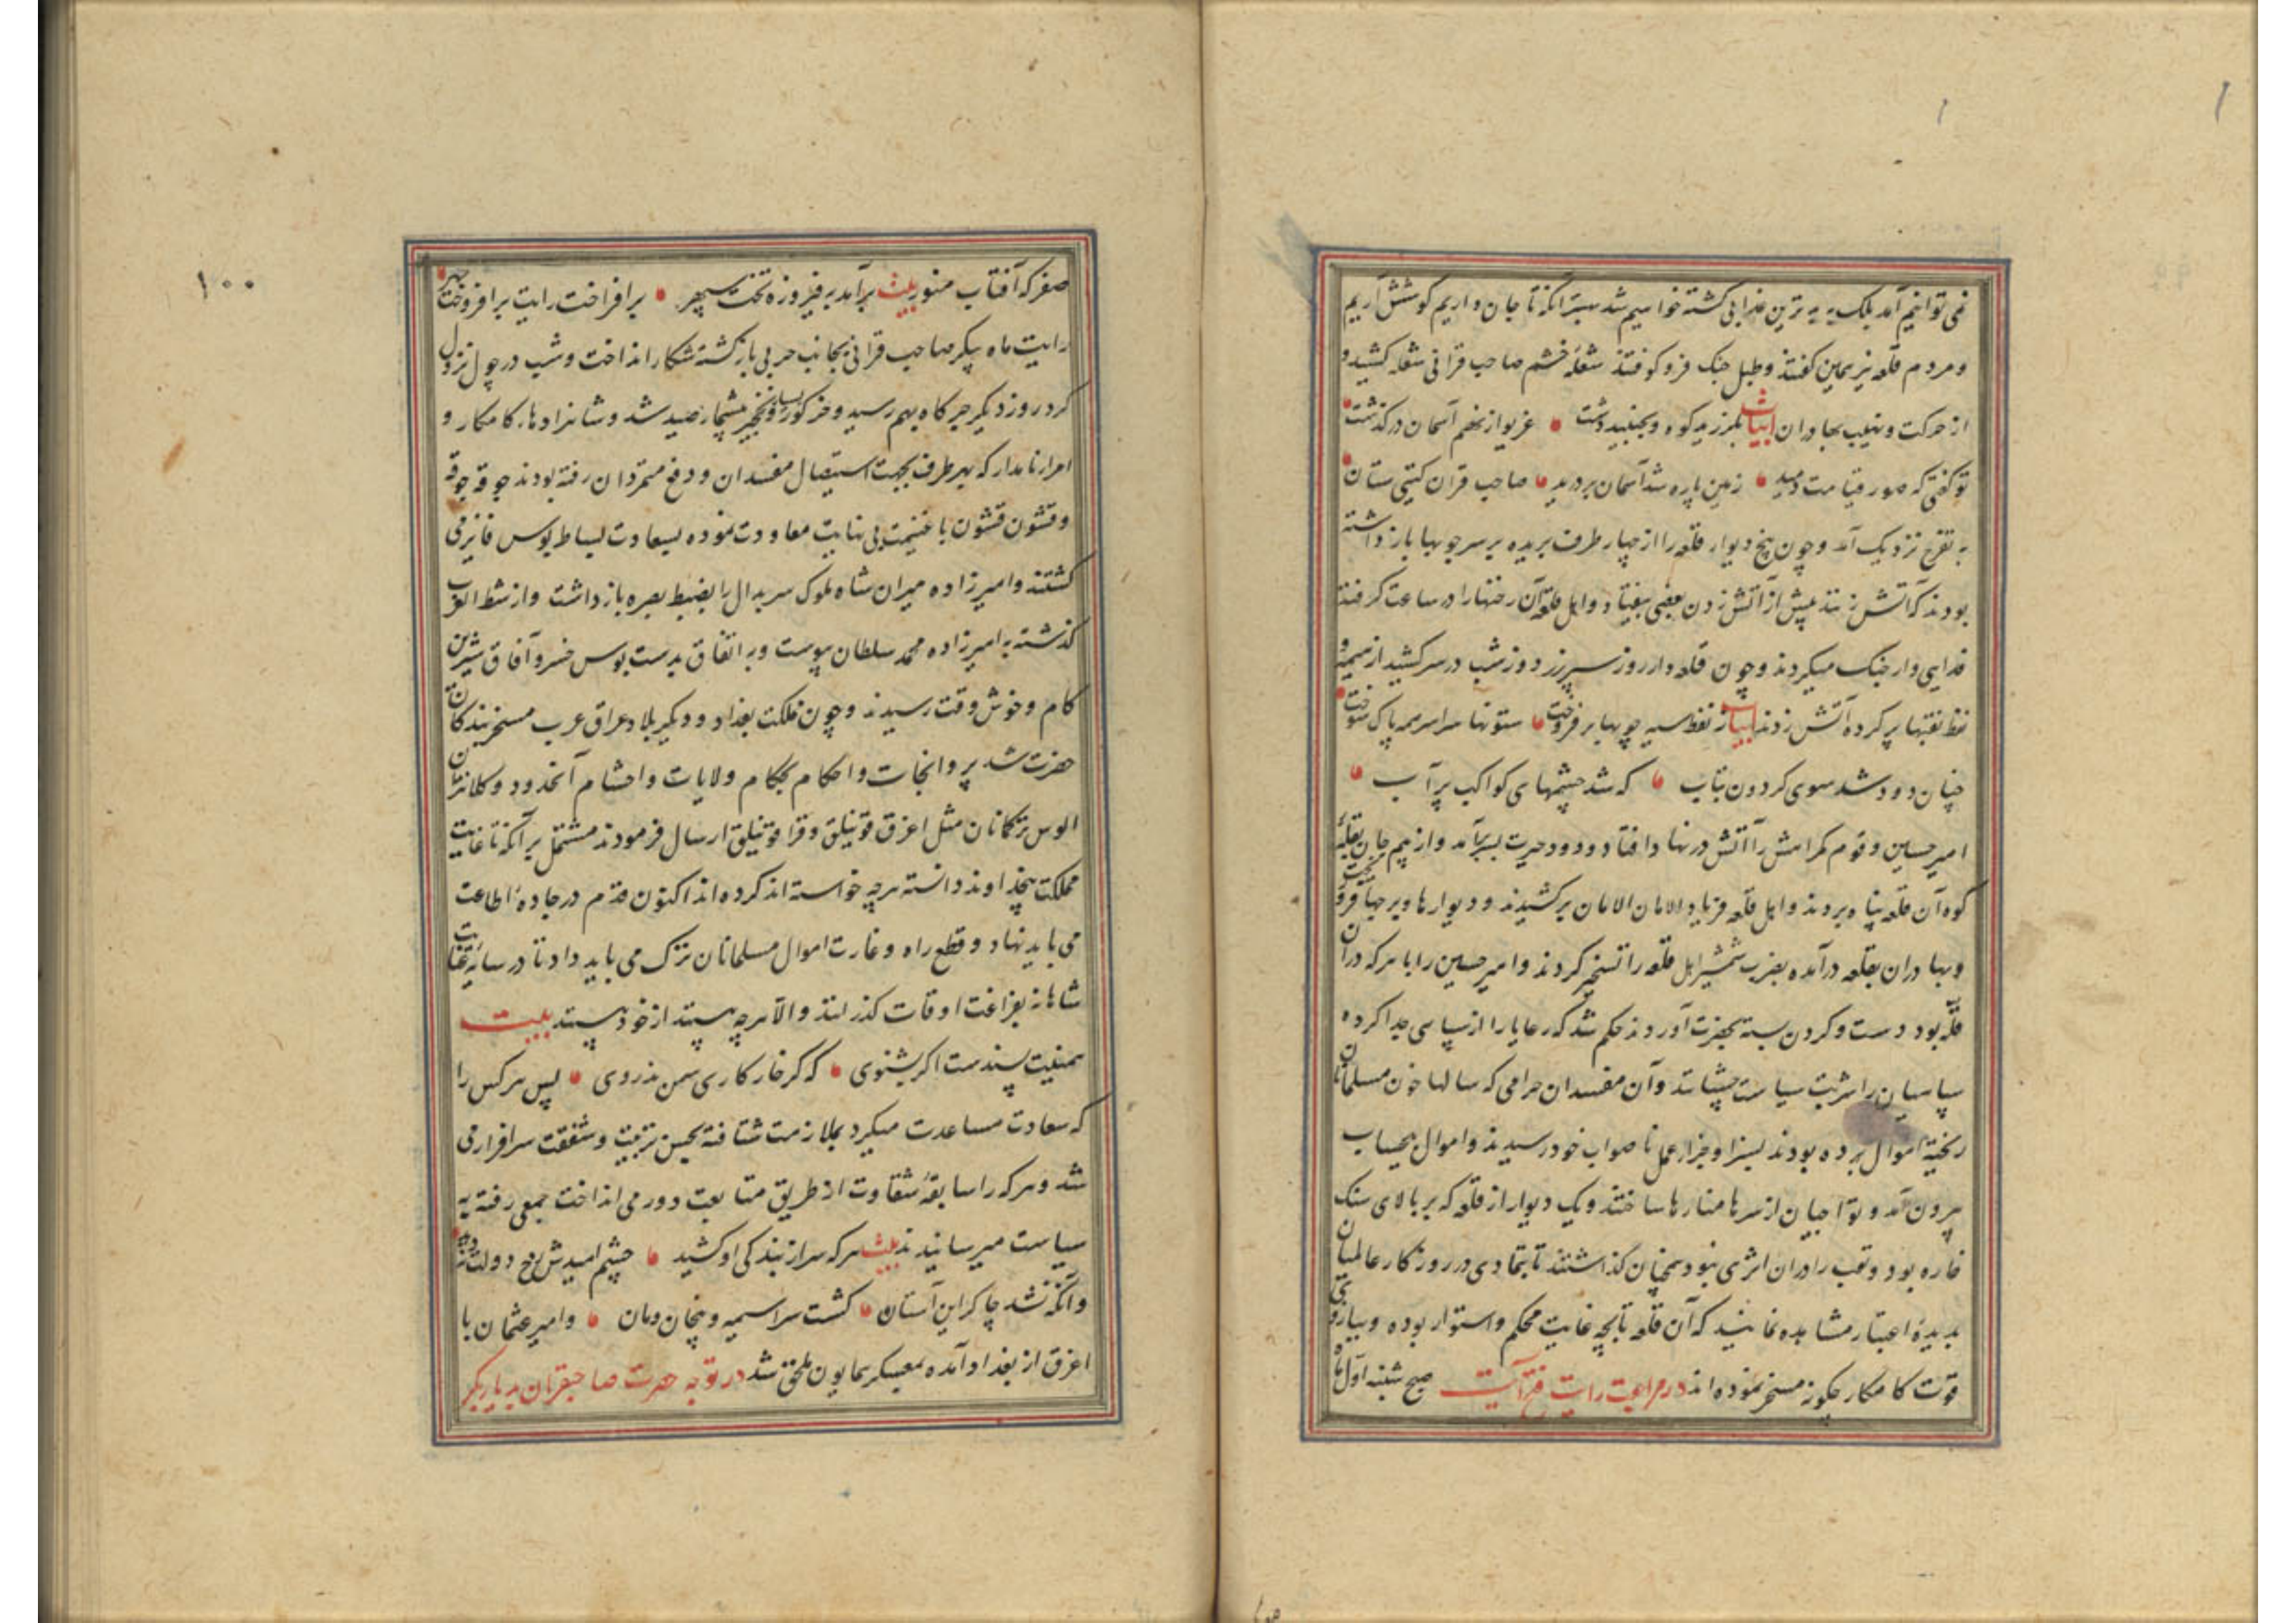 نمی توانیم آمد بلک به بدترین عذابی کشته خواهیم شد بهتر آنکه تا جان داریم کوشش آریم
و مردم قلعه نیز همین گفتند و طبل جنک فرو کوفتند شعلهٔ خشم صاحب قرانی شعله کشید و
از حرکت و نهیب بهادران ابیات بلرزید کوه و بجنبید دشت غریو از نهم آسمان در گذشت
تو گفتی که صور قیامت دمید زمین پاره شد آسمان بر درید صاحب قران گیتی ستان
به تفرج نزدیک آمد و چون بیخ دیوار قلعه را از چهار طرف بریده بر سر چوبها باز داشته
بودند که آتش زنند پیش از آتش زدن بعضی بیفتاد و اهل قلعه آن رخنها را در ساعت گرفتند
فدایی وار جنک میکردند و چون قلعه دار روز سپر زر دوز شب در سر کشید از هیمه و
نفط نقبها پر کرده آتش زدند ابیات ز نفط سیه چوبها بر فروخت ستونها سراسر همه پاک سوخت
چنان دود شد سوی کردون بتاب که شد چشمهای کواکب پر آب
امیر حسین و قوم گمراهش را آتش در نهاد افتاد و دود حیرت بسر بر آمد و از بیم جان بقلهٔ
کوه آن قلعه پناه بردند و اهل قلعه فریاد الامان الامان بر کشیدند و دیوارها و برجها فرو ریخت
و بهادران بقلعه در آمده بضرب شمشیر اهل قلعه را تسخیر کردند و امیر حسین را با هر که در آن
قله بود دست و کردن بسته بحضرت آوردند حکم شد که رعایا را از سپاهی جدا کرده
سپاهیان را شربت سیاست چشاند و آن مفسدان حرامی که سالها خون مسلمانان
ریخته اموال برده بودند بسزا و جزاء عمل ناصواب خود رسیدند و اموال بیحساب
بیرون آمد و تواجیان از سرها منارها ساختند و یک دیوار از قلعه که بر بالای سنک
خاره بود و نقب را در آن اثری نبود همچنان گذاشتند تا بتمادی در روزکار عالمیان
بدیدهٔ اعتبار مشاهده نمایند که آن قلعه تا بچه غایت محکم و استوار بوده و ببازوی
قوت کامکار چکونه مسخر نموده اند در مراجعت رایت فتح آیت صبح شنبه اول ماه
۱۰۰
صفر که آفتاب منور بیت برآمد به فیروزه تخت سپهر بر افراخت رایت بر افروخت چهر
رایت ماه پیکر صاحب قرانی بجانب حربی باز گشته شکار انداخت و شب در چول نزول
کرد روز دیکر جرکاه بهم رسید و خرکور بسیار و نخچیر بیشمار صید شد و شاهزادهاء کامکار و
امراء نامدار که بهر طرف بجهت استیصال مفسدان و دفع متمردان رفته بودند جوقه جوقه
و قشون قشون با غنیمت بی نهایت معاودت نموده بسعادت بساط بوس فایز می
گشتند و امیرزاده میران شاه ملوک سربدال را بضبط بصره باز داشت و از شط العرب
گذشته به امیرزاده محمد سلطان پیوست و به اتفاق بدست بوس خسرو آفاق شیرین
کام و خوش وقت رسیدند و چون مملکت بغداد و دیکر بلاد عراق عرب مسخر بندکان
حضرت شد پروانجات و احکام بحکام ولایات و احشام آنحدود و کلانتران
الوس ترکمانان مثل اغرق قوتیلق و قرا قوتیلق ارسال فرمودند مشتمل بر آنکه تا غایت
مملکت بیخداوند دانسته هرچه خواسته اند کرده اند اکنون قدم در جادهٔ اطاعت
می باید نهاد و قطع راه و غارت اموال مسلمانان ترک می باید داد تا در سایهٔ عنایت
شاهانه بفراغت اوقات گذرانند و الا هرچه بینند از خود بینند بیت
همینت پسندست اکر بشنوی که گر خار کاری سمن ندروی پس هر کس را
که سعادت مساعدت میکرد بملازمت شتافته بحسن تربیت و شفقت سرافراز می
شد و هر که را سابقهٔ شقاوت از طریق متابعت دور می انداخت جمعی رفته به
سیاست میرسانیدند بیت هر که سر از بندکی او کشید چشم امیدش رخ دولت ندید
وانکه نشد چاکر این آستان کشت سراسیمه و بیخان و مان و امیر عثمان با
اغرق از بغداد آمده بمعسکر همایون ملحق شد در توجه حضرت صاحبقران بدیار بکر